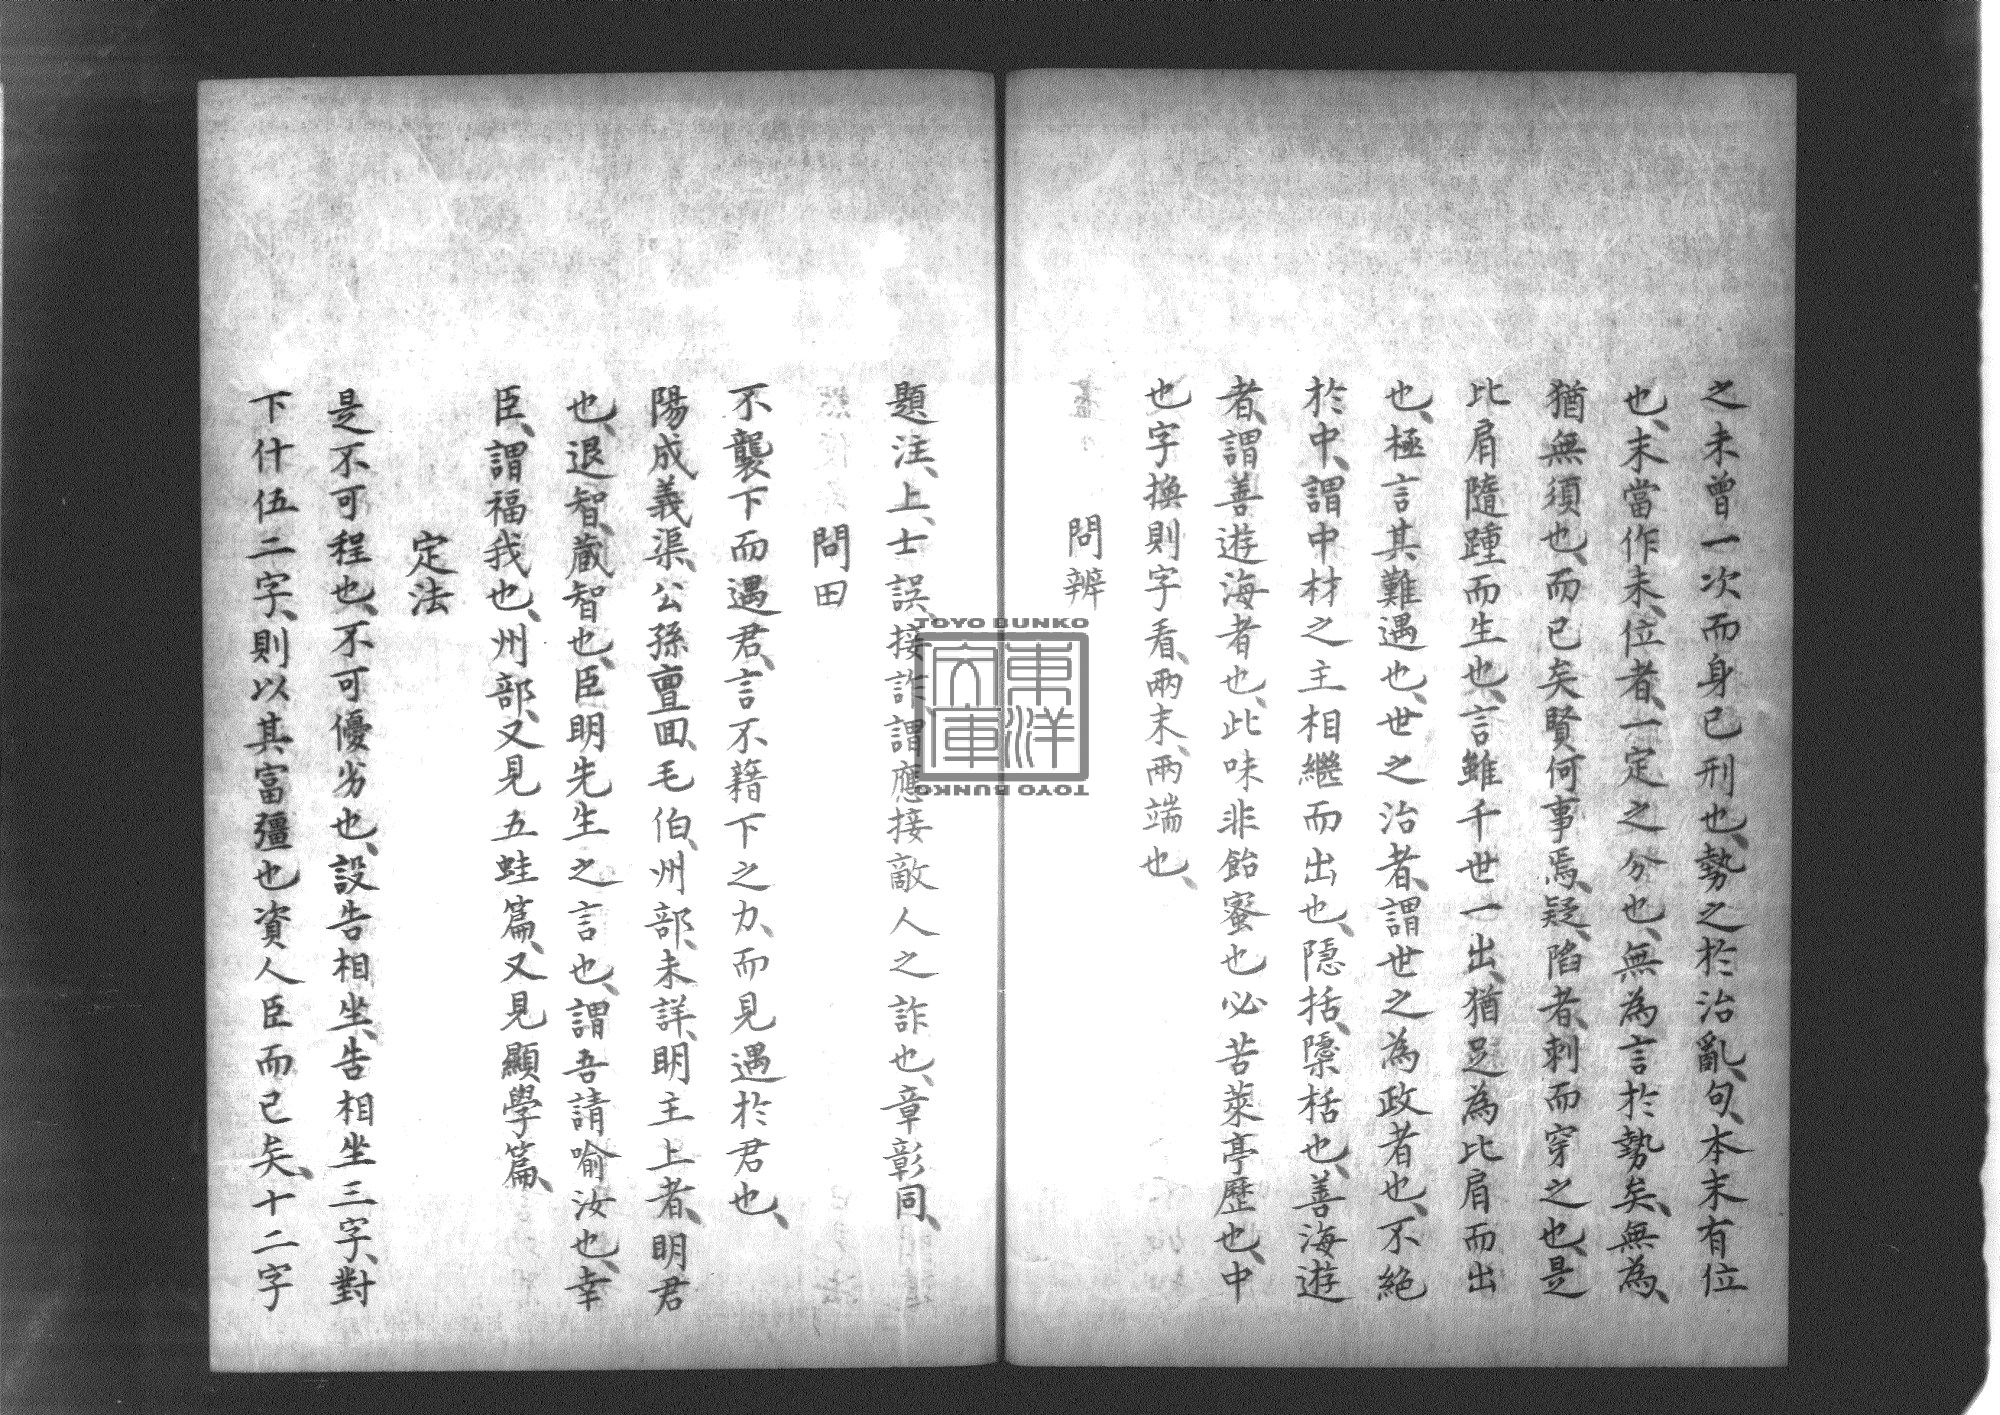 之未曾一次而身已刑也、勢之於治亂、句、本末有位
也、末當作未、位者、一定之分也、無為言於勢矣、無為、
猶無須也、而已矣賢何事焉、疑、陷者、刺而穿之也、是
比肩隨踵而生也、言雖千世一出、猶足為比肩而出
也、極言其難遇也、世之治者、謂世之為政者也、不絶
於中、謂中材之主相繼而出也、隱括、隱栝也、善海遊
者、謂善遊海者也、此味非飴蜜也必苦萊亭歷也、中
也字換則字看、兩末、兩端也、
問辨
題注、上、士誤、接詐、謂應接敵人之詐也、章彰同、
問田
不襲下而遇君、言不藉下之力、而見遇於君也、
陽成義渠、公孫亶囬、毛伯、州部、未詳、明主上者、明君
也、退智、蔵智也、臣明先生之言也、謂吾請喻汝也、幸
臣、謂福我也、州部、又見五蛙篇、又見顯學篇、
定法
是不可程也、不可優劣也、設告相坐、告相坐三字、對
下什伍二字、則以其富彊也資人臣而已矣、十二字
TOYO BUNKO
東洋
文庫
TOYO BUNKO